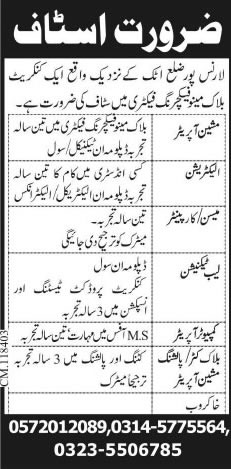 ضرورت اسٹاف
لارنس پور ضلع اٹک کے نزدیک واقع ایک کنکریٹ
بلاک مینوفیکچرنگ فیکٹری میں سٹاف کی ضرورت ہے۔
مشین آپریٹر
بلاک مینوفیکچرنگ فیکٹری میں تین سالہ
تجربہ ڈپلومہ ان ٹیکنیکل/سول
الیکٹریشن
کسی انڈسٹری میں کام کا تین سالہ
تجربہ ڈپلومہ ان الیکٹریکل/الیکٹرانکس
میسن/کارپینٹر
تین سالہ تجربہ۔
میٹرک کو ترجیح دی جائیگی
لیب ٹیکنیشن
ڈپلومہ ان سول
کنکریٹ پروڈکٹ ٹیسٹنگ اور
انسپکشن میں 3 سالہ تجربہ
کمپیوٹر آپریٹر
M.S آفس میں مہارت، تین سالہ تجربہ
بلاک کٹر/پالشنگ
مشین آپریٹر
کٹنگ اور پالشنگ میں 3 سالہ تجربہ
ترجیحاً میٹرک
خاکروب
0572012089,0314-5775564,
0323-5506785
CM.118403